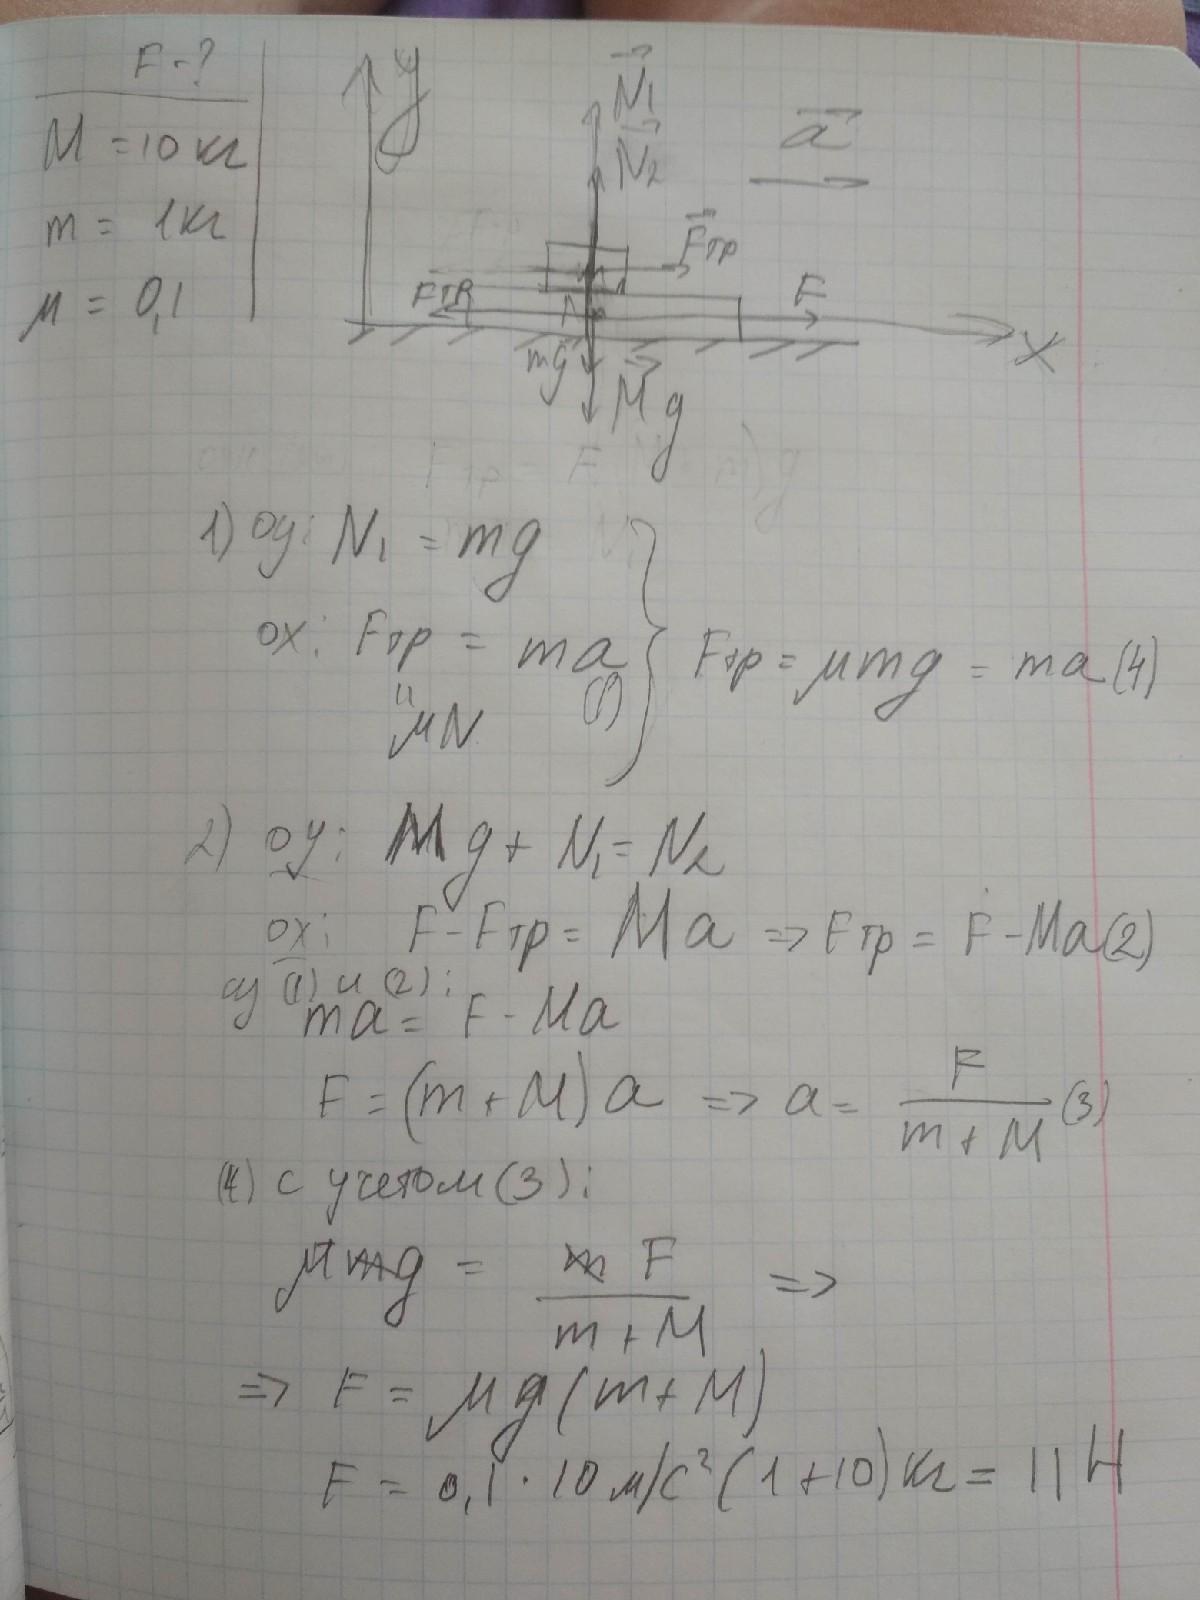 F - ?
M = 10 кг
m = 1 кг
μ = 0,1
y
N₁
N₂
a
Fтр
Fтр
F
x
mg
Mg
1) oy: N₁ = mg
ox: Fтр = ma (1)
" μN
Fтр = μmg = ma (4)
2) oy: Mg + N₁ = N₂
ox: F - Fтр = Ma => Fтр = F - Ma (2)
из (1) и (2):
ma = F - Ma
F = (m + M) a => a = F / (m + M) (3)
(4) с учетом (3):
μmg = m F / (m + M) =>
=> F = μg (m + M)
F = 0,1 · 10 м/с² (1 + 10) кг = 11 Н